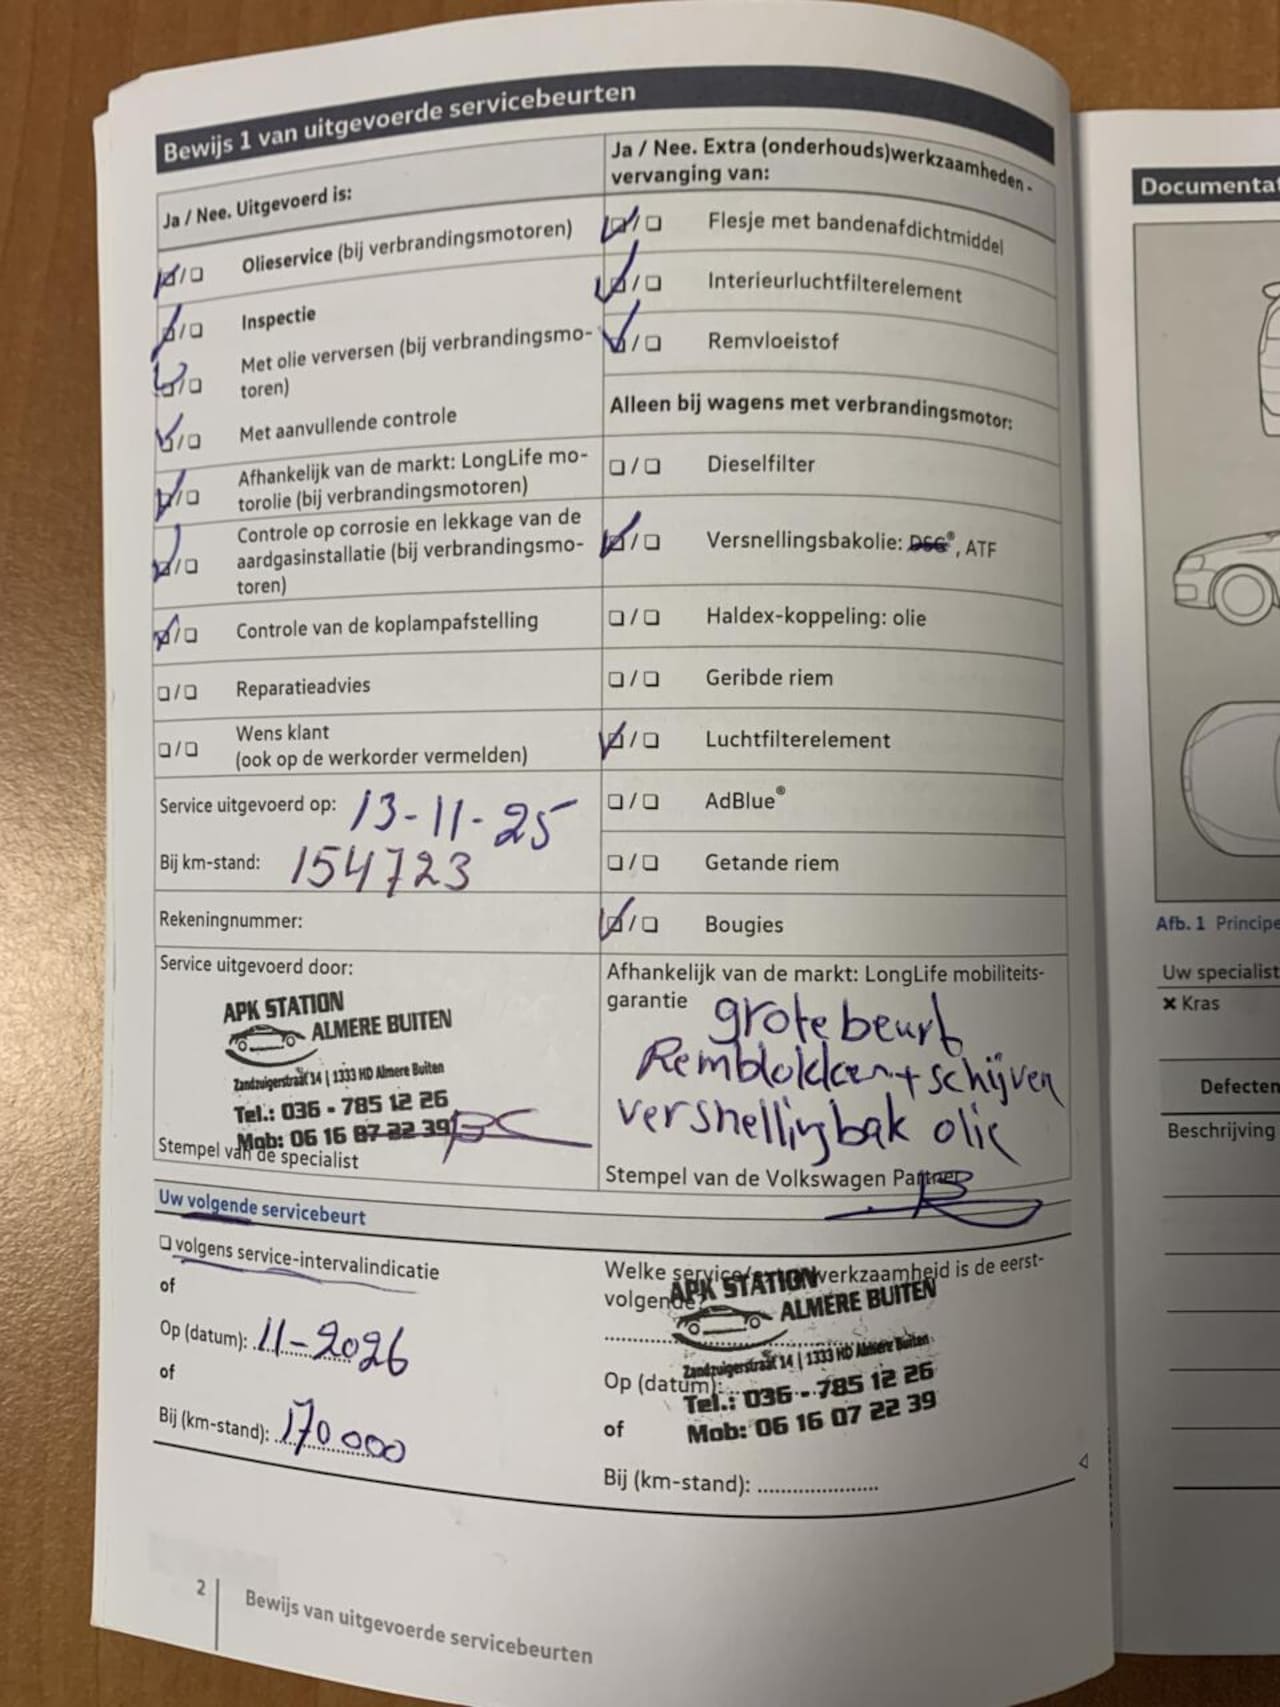 Bewijs 1 van uitgevoerde servicebeurten
Ja / Nee. Uitgevoerd is:
☑/❑ Olieservice (bij verbrandingsmotoren)
☑/❑ Inspectie
☑/❑ Met olie verversen (bij verbrandingsmo-
toren)
☑/❑ Met aanvullende controle
☑/❑ Afhankelijk van de markt: LongLife mo-
torolie (bij verbrandingsmotoren)
☑/❑ Controle op corrosie en lekkage van de
aardgasinstallatie (bij verbrandingsmo-
toren)
☑/❑ Controle van de koplampafstelling
❑/❑ Reparatieadvies
❑/❑ Wens klant
(ook op de werkorder vermelden)
Service uitgevoerd op: 13-11-25
Bij km-stand: 154723
Rekeningnummer:
Service uitgevoerd door:
APK STATION
ALMERE BUITEN
Zandzuigerstraat 14 | 1333 HD Almere Buiten
Tel.: 036 - 785 12 26
Mob: 06 16 07 22 39
Stempel van de specialist
Ja / Nee. Extra (onderhouds)werkzaamheden -
vervanging van:
☑/❑ Flesje met bandenafdichtmiddel
☑/❑ Interieurluchtfilterelement
☑/❑ Remvloeistof
Alleen bij wagens met verbrandingsmotor:
❑/❑ Dieselfilter
☑/❑ Versnellingsbakolie: DSG®, ATF
❑/❑ Haldex-koppeling: olie
❑/❑ Geribde riem
☑/❑ Luchtfilterelement
❑/❑ AdBlue®
❑/❑ Getande riem
☑/❑ Bougies
Afhankelijk van de markt: LongLife mobiliteits-
garantie
grote beurt
Remblokken + schijven
versnellingbak olie
Stempel van de Volkswagen Partner
Uw volgende servicebeurt
❑ volgens service-intervalindicatie
of
Op (datum): 11-2026
of
Bij (km-stand): 170000
Welke service/ werkzaamheid is de eerst-
volgende?
APK STATION
ALMERE BUITEN
Zandzuigerstraat 14 | 1333 HD Almere Buiten
Op (datum):
Tel.: 036 - 785 12 26
of
Mob: 06 16 07 22 39
Bij (km-stand):
2 Bewijs van uitgevoerde servicebeurten
Documentat
Afb. 1 Principe
Uw specialist
✖ Kras
Defecten
Beschrijving